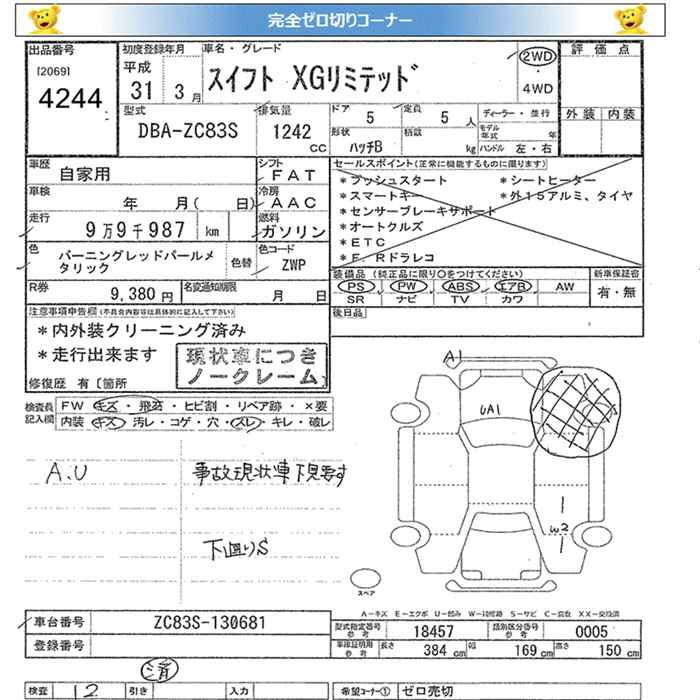 完全ゼロ切りコーナー
出品番号 初度登録年月 車名・グレード 評価点
[2069] 平成 2WD
4244 31 3月 スイフト XGリミテッド ・
4WD
型式 排気量 ドア 定員 ディーラー・並行 外装 内装
DBA-ZC83S 1242 cc 5 5人 モデル年式 年
形状 柄数
ハッチB kg ハンドル 左・右
車歴 自家用 シフト FAT セールスポイント(正常に機能するものに限ります)
*プッシュスタート *シートヒーター
車検 年 月( 日) 冷房 AAC *スマートキー *外15アルミ、タイヤ
走行 9万9千987 km 燃料 ガソリン *センサーブレーキサポート
*オートクルズ
色 バーニングレッドパールメタリック 色替 色コード ZWP *ETC
*F.Rドラレコ
R券 9,380円 名変通知期限 月 日 装備品(純正品に限り○をつけてください) 新車保証書
PS PW ABS エアB AW 有・無
SR ナビ TV カワ
注意事項申告欄(不具合内容等は具体的に記入して下さい) 後日品
*内外装クリーニング済み
*走行出来ます 現状車につき
ノークレーム
修復歴 有〔箇所
検査員記入欄 FW キズ・飛石・ヒビ割・リペア跡・×要
内装 キズ・汚レ・コゲ・穴・スレ・キレ・破レ
A1
UA1
A.U 事故現状車下見要す
W2
下廻りS
スペア
A-キズ E-エクボ U-凹み W-補修跡 S-サビ C-腐食 XX-交換済
車台番号 ZC83S-130681 型式指定番号 参考 18457 類別区分番号 参考 0005
登録番号 車庫証明用 参考 長さ 384cm 幅 169cm 高さ 150cm
済
検査 12 引き 入力 希望コーナー① ゼロ売切